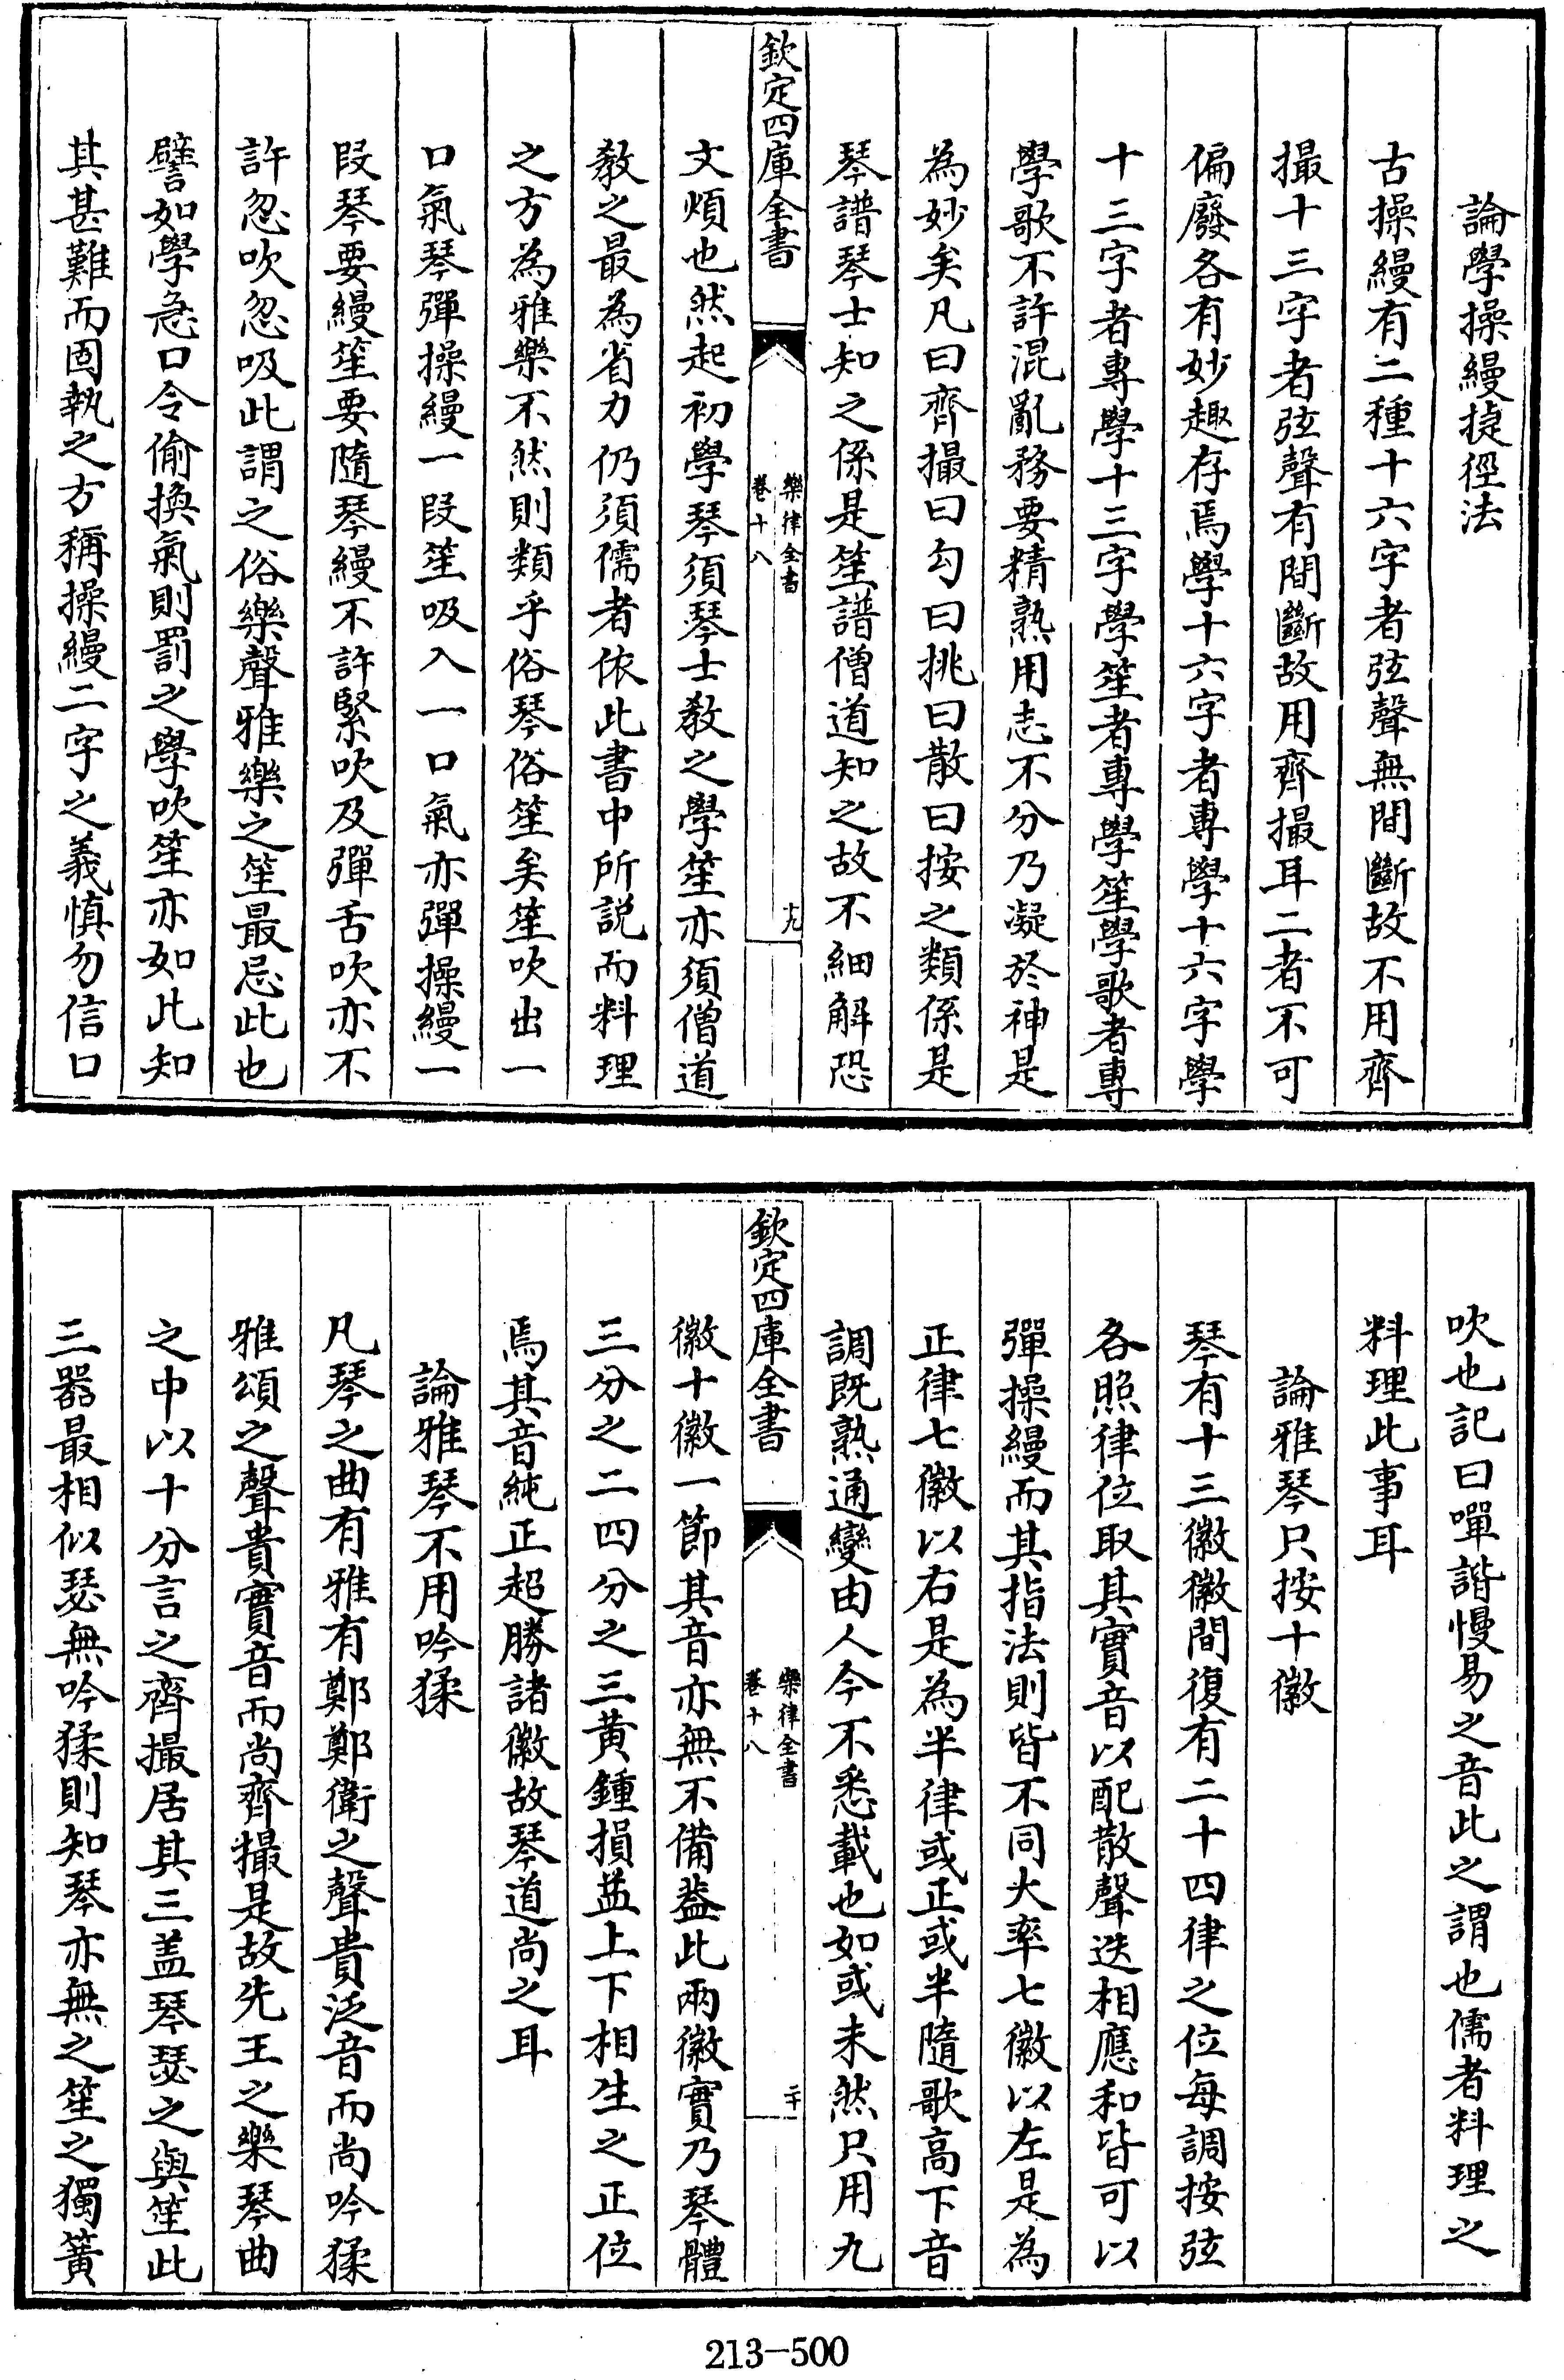 論學操縵捷徑法
古操縵有二種十六字者弦聲無間斷故不用齊
撮十三字者弦聲有間斷故用齊撮耳二者不可
偏廢各有妙趣存焉學十六字者專學十六字學
十三字者專學十三字學笙者專學笙學歌者專
學歌不許混亂務要精熟用志不分乃凝於神是
為妙矣凡曰齊撮曰勾曰挑曰散曰按之類係是
琴譜琴士知之係是笙譜僧道知之故不細解恐
欽定四庫全書
樂律全書
卷十八
十九
文煩也然起初學琴須琴士教之學笙亦須僧道
教之最為省力仍須儒者依此書中所説而料理
之方為雅樂不然則類乎俗琴俗笙矣笙吹出一
口氣琴彈操縵一段笙吸入一口氣亦彈操縵一
段琴要縵笙要隨琴縵不許緊吹及彈舌吹亦不
許忽吹忽吸此謂之俗樂聲雅樂之笙最忌此也
譬如學急口令偷換氣則罰之學吹笙亦如此知
其甚難而固執之方稱操縵二字之義慎勿信口
吹也記曰嘽諧慢易之音此之謂也儒者料理之
料理此事耳
論雅琴只按十徽
琴有十三徽徽間復有二十四律之位每調按弦
各照律位取其實音以配散聲迭相應和皆可以
彈操縵而其指法則皆不同大率七徽以左是為
正律七徽以右是為半律或正或半隨歌高下音
調既熟通變由人今不悉載也如或未然只用九
欽定四庫全書
樂律全書
卷十八
二十
徽十徽一節其音亦無不備葢此兩徽實乃琴體
三分之二四分之三黄鍾損益上下相生之正位
焉其音純正超勝諸徽故琴道尚之耳
論雅琴不用吟猱
凡琴之曲有雅有鄭鄭衛之聲貴泛音而尚吟猱
雅頌之聲貴實音而尚齊撮是故先王之樂琴曲
之中以十分言之齊撮居其三盖琴瑟之與笙此
三器最相似瑟無吟猱則知琴亦無之笙之獨簧
213-500